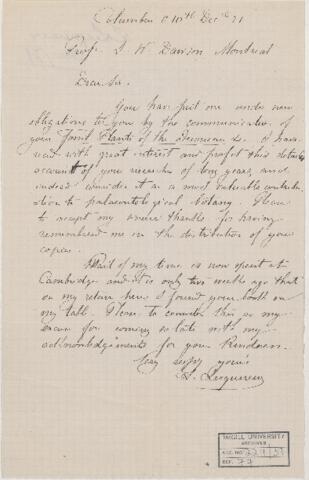 Columbus O 10th Dec 71
Prof. J. W. Dawson Montreal
Dear Sir.
You have put me under new
obligations to you by the communication of
your Fossil Plants of the Devonian &. I have
read with great interest and profit this detailed
account of your researches of long years, and
indeed consider it as a most valuable contribu-
tion to palaeontological Botany. Please
to accept my sincere thanks for having
remembered me in the distribution of your
copies.
Most of my time is now spent at
Cambridge and it is only two weeks ago that
on my return here I found your book on
my table. Please to consider this as my
excuse for coming so late with my
acknowledgements for your Kindness.
Very sincerely yours
L. Lesquereux
McGILL UNIVERSITY
ARCHIVES
ACC. NO.
REF.